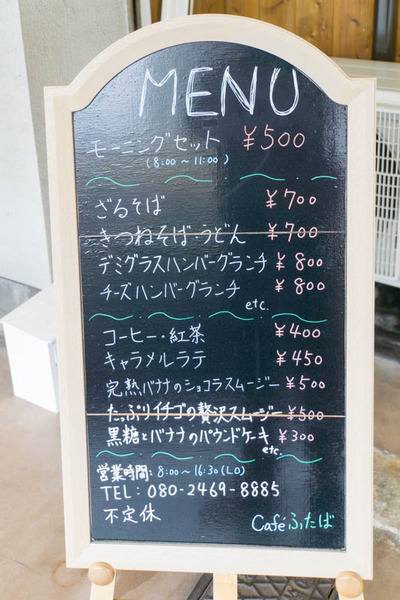 MENU
モーニングセット ¥500
(8:00～11:00)
ざるそば ¥700
きつねそば・うどん ¥700
デミグラスハンバーグランチ ¥800
チーズハンバーグランチ ¥800
etc.
コーヒー・紅茶 ¥400
キャラメルラテ ¥450
完熟バナナのショコラスムージー ¥500
たっぷりイチゴの贅沢スムージー ¥500
黒糖とバナナのパウンドケーキ ¥300
etc.
営業時間: 8:00～16:30(LO)
TEL: 080-2469-8885
不定休
Caféふたば